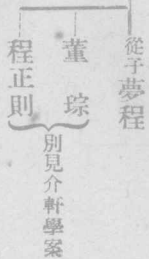 從子夢程
董琮
程正則
別見介軒學案